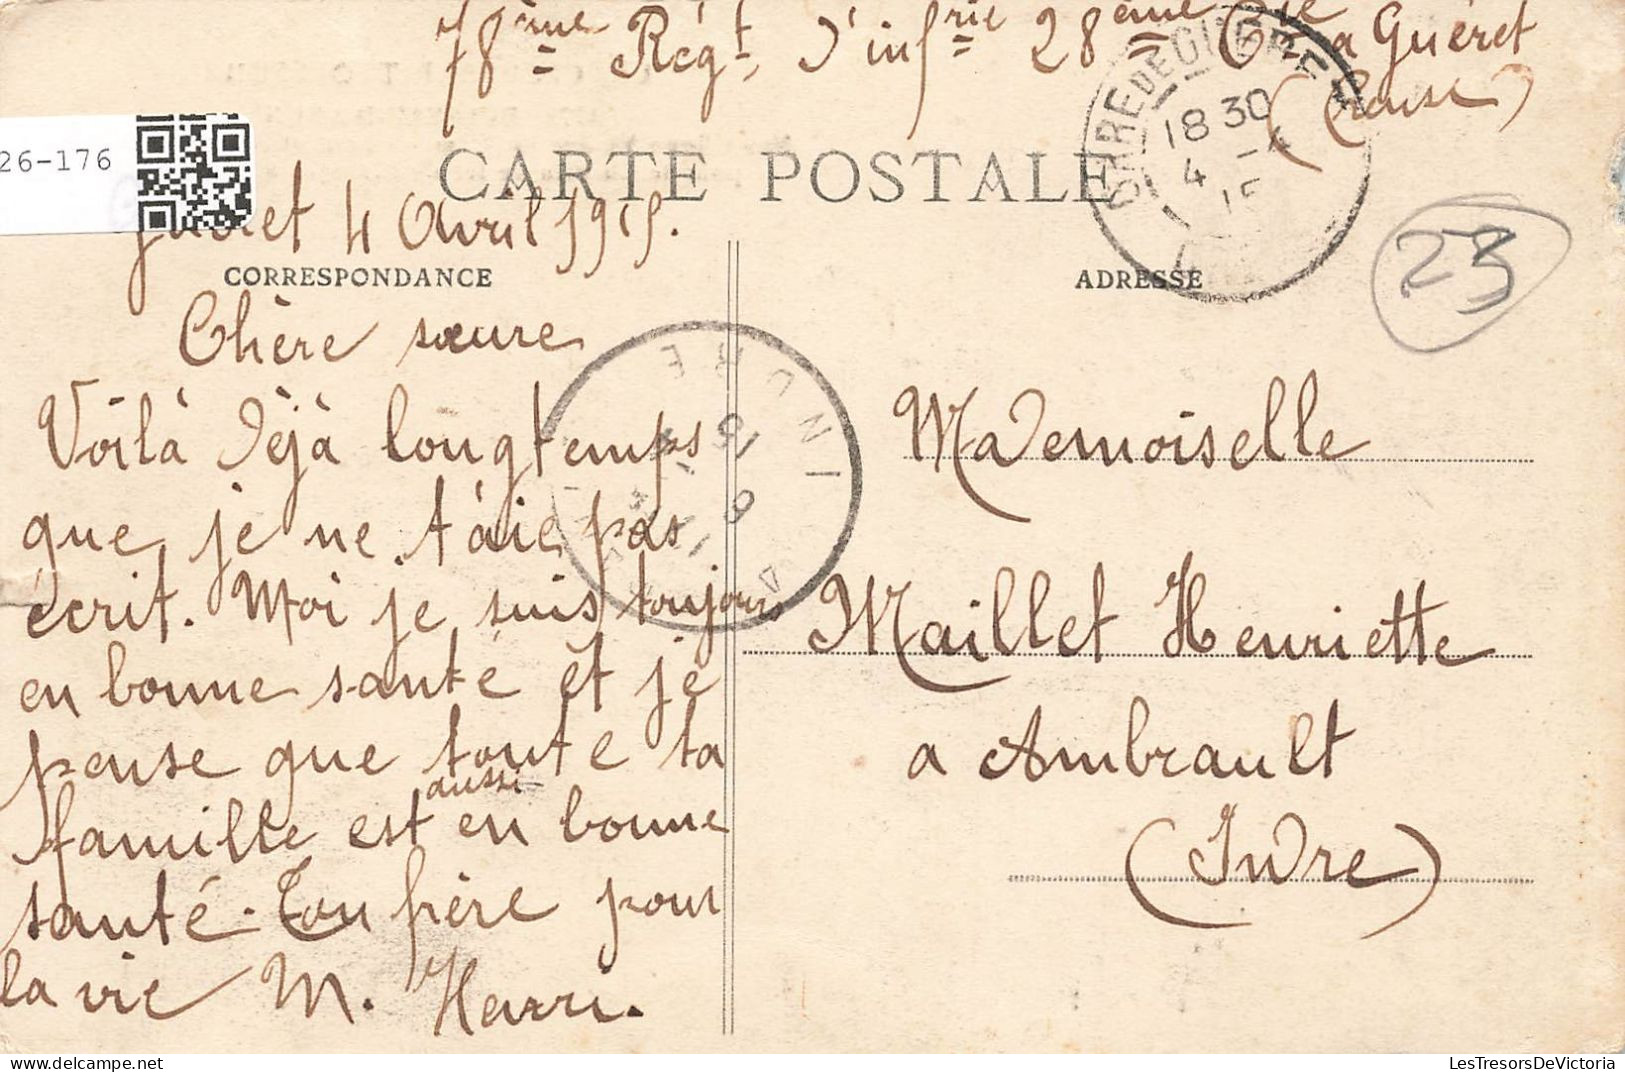 78ème Régt d'infrie 28ème Cie a Guéret
(Creuse)
26-176
CARTE POSTALE
GARE DE GUERET
18 30
4 -4
15
Guéret 4 Avril 1915.
CORRESPONDANCE
ADRESSE
23
Chère sœure
Voilà déjà longtemps
que je ne t'aie pas
écrit. Moi je suis toujours
en bonne santé et je
pense que toute ta
famille est aussi en bonne
santé. Ton frère pour
la vie M. Henri.
INDRE
Mademoiselle
Maillet Henriette
a Ambrault
(Indre)
LesTresorsDeVictoria